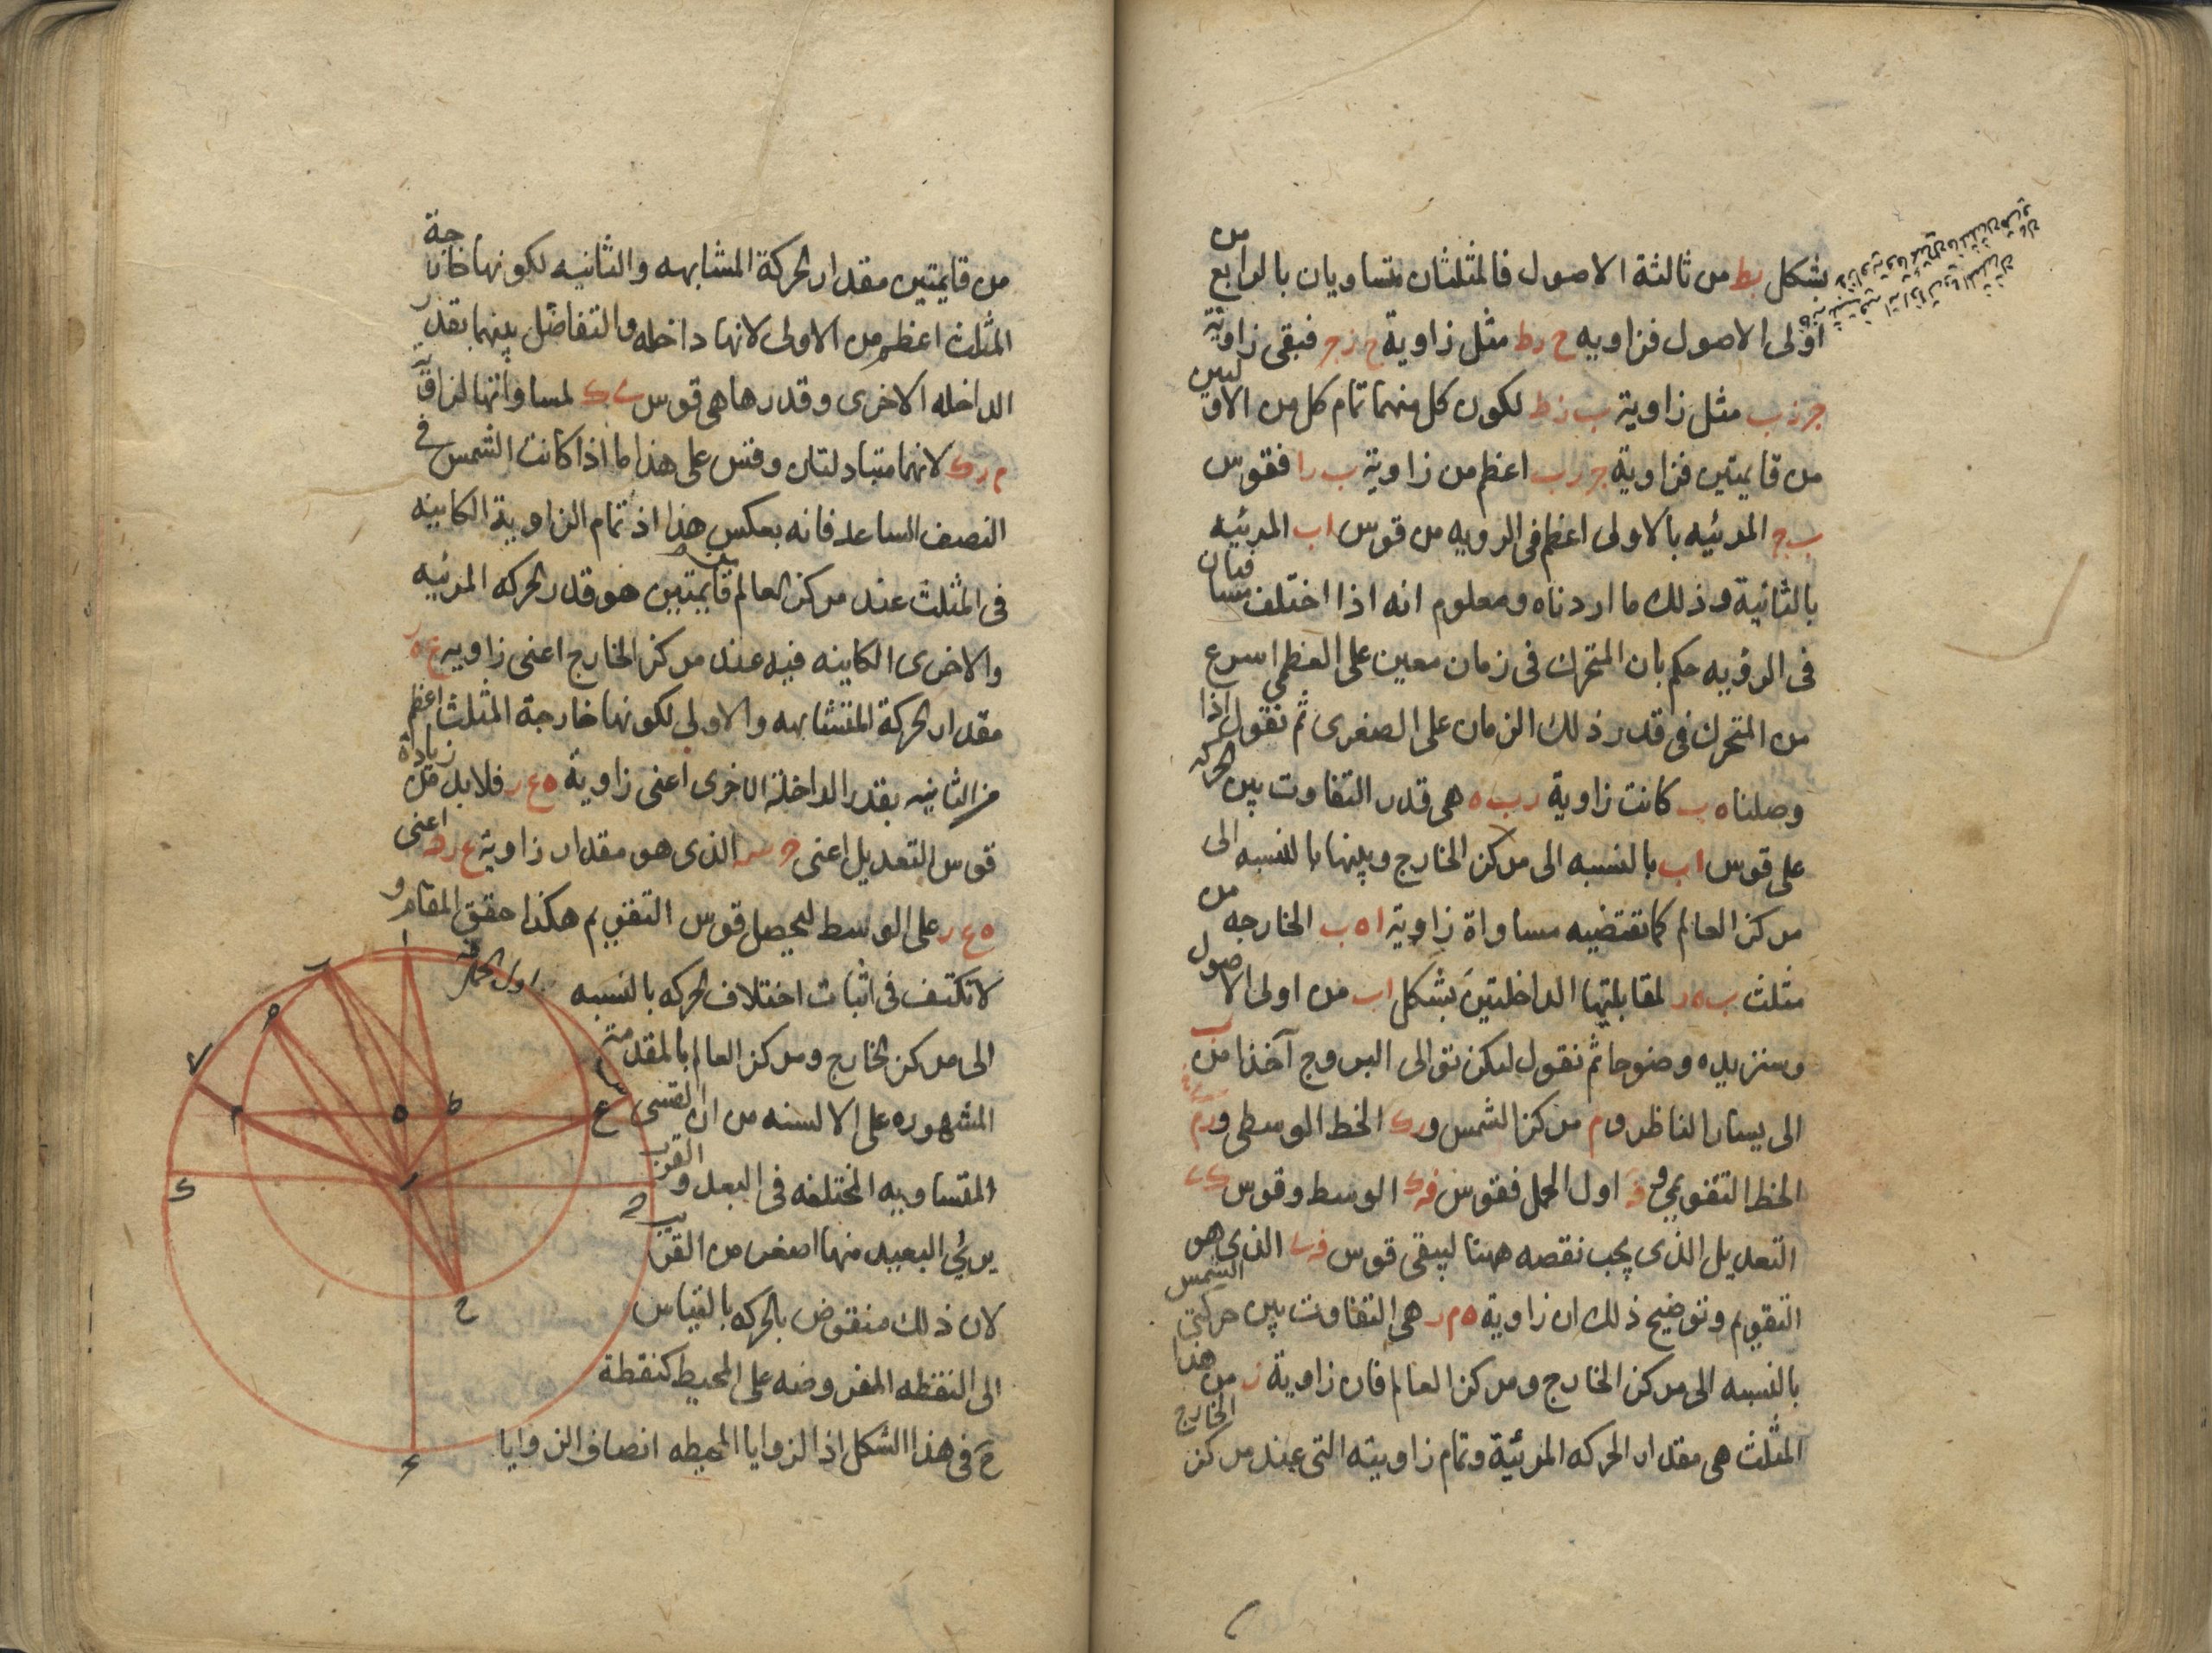 بشكل يط من ثالثة الاصول فالمثلثان متساويان بالرابع من
اولى الاصول فزاويه ح ر ط مثل زاوية ح ز ج فبقى زاوية
ج ز ب مثل زاوية ب ز ط لكون كل منهما تمام كل من الاوليين
من قايمتين فزاوية ج ر ب اعظم من زاوية ب ر ا فقوس
ب ج المرئيه بالاولى اعظم فى الرويه من قوس ا ب المرئيه
بالثانية وذلك ما اردناه ومعلوم انه اذا اختلف مسافتان
فى الرؤيه حكم بان المتحرك فى زمان معين على العظمى اسرع
من المتحرك فى قدر ذلك الزمان على الصغرى ثم نقول اذا
وصلنا ه ب كانت زاوية ر ب ه هى قدر التفاوت بين الحركه
على قوس ا ب بالنسبه الى مركز الخارج وبينها بالنسبه الى
مركز العالم كما تقتضيه مساواة زاوية ا ه ب الخارجه من
مثلث ب ه ر لمقابلتيها الداخلتين بشكل لب من اولى الاصول
وسنزيده وضوحا ثم نقول ليكن توالى البروج آخذا من ب
الى يسار الناظر و م مركز الشمس و ر ك الخط الوسطى و ر م
الخط التقويمى و اول الحمل فقوس ف ك الوسط وقوس
التعديل الذى يجب نقصه ههنا ليبقى قوس الذى هو
التقويم وتوضيح ذلك ان زاوية ه م ر هى التفاوت بين حركتى الشمس
بالنسبه الى مركز الخارج ومركز العالم فان زاوية ر من هذا
المثلث هى مقدار الحركه المرئية وتمام زاويته التى عند مركز الخارج
من قايمتين مقدار الحركة المتشابهه والثانيه لكونها خارجة
المثلث اعظم من الاولى لانها داخله والتفاضل بينهما بقدر
الداخله الاخرى وقدرها هى قوس لمساواتها لزاوية
م ر ك لانهما متبادلتان وقس على هذا ما اذا كانت الشمس فى
النصف الصاعد فانه بعكس هذا اذ تمام الزاوية الكاينه
فى المثلث عند مركز العالم من قايمتين هو قدر الحركه المرئيه
والاخرى الكاينه فيه عند مركز الخارج اعنى زاويه ع ه ر
مقدار الحركة المتشابهه والاولى لكونها خارجة المثلث اعظم
من الثانيه بقدر الداخلة الاخرى اعنى زاوية ه ع ر فلابد من زيادة
قوس التعديل اعنى الذى هو مقدار زاوية اعنى
ه ع ر على الوسط ليحصل قوس التقويم هكذا حقق المقام و
لا تكتف فى اثبات اختلاف الحركه بالنسبه
الى مركز الخارج ومركز العالم بالمقدمة
المشهوره على الالسنه من ان القسى
المتساويه المختلفه فى البعد والقرب
يرئي البعيد منها اصغر من القريب
لان ذلك منقوض بالحركه بالقياس
الى النقطه المفروضه على المحيط كنقطة
ح فى هذا الشكل اذ الزوايا المحيطه انصاف الزوايا
اول الحمل